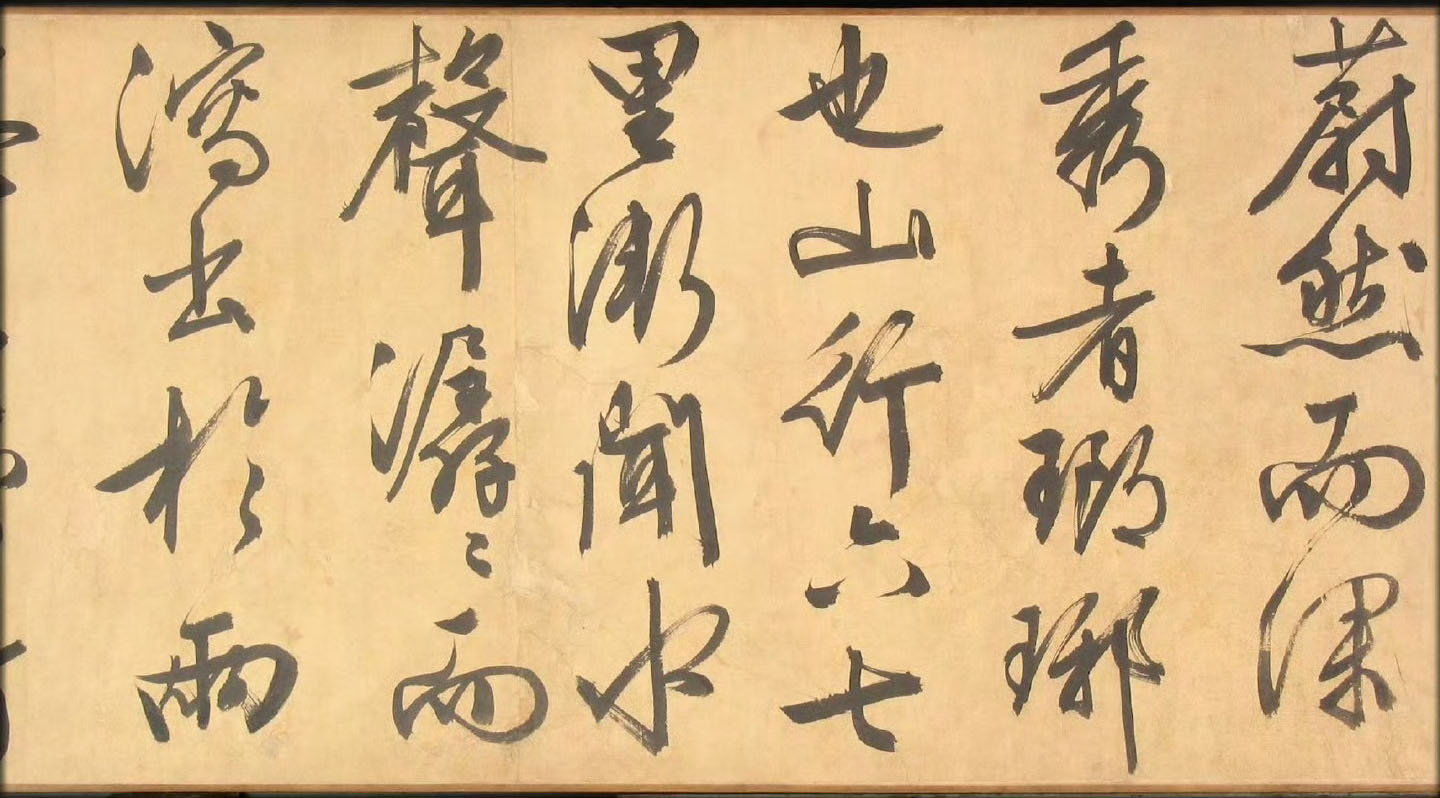 蔚然而深
秀者瑯琊
也山行六七
里漸聞水
聲潺〻而
瀉出於兩